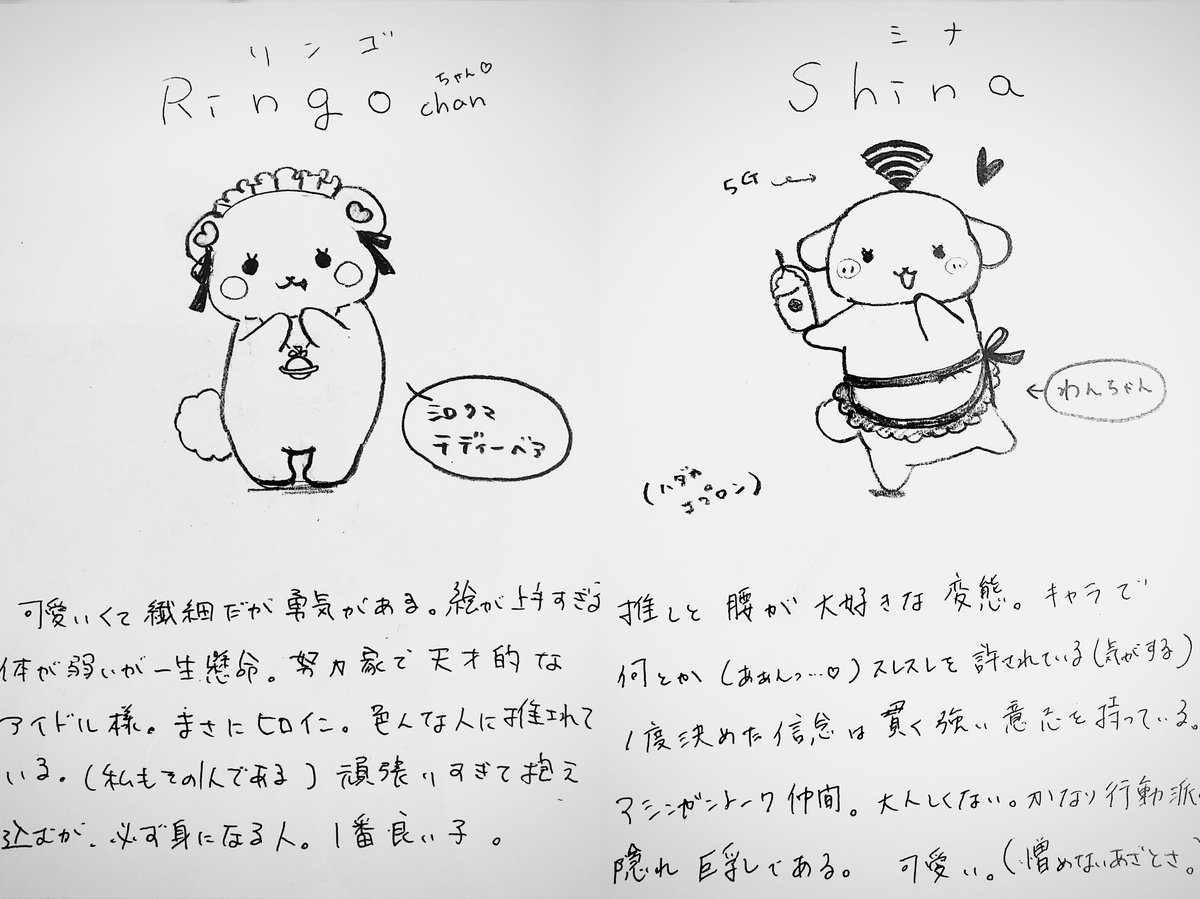 リンゴ
Ringo chan
ちゃん♡
シロクマ
テディーベア
可愛いくて繊細だが勇気がある。絵が上手すぎる
体が弱いが一生懸命。努力家で天才的な
アイドル様。まさにヒロイン。色んな人に推されて
いる。(私もその1人である)頑張りすぎて抱え
込むが、必ず身になる人。1番良い子。
ミナ
Shina
5G
わんちゃん
(ハダカエプロン)
推しと腰が大好きな変態。キャラで
何とか(あぁんっ…♡)スレスレを許されている(気がする)
1度決めた信念は貫く強い意志を持っている。
マシンガントーク仲間。大人しくない。かなり行動派。
隠れ巨乳である。 可愛い。(憎めないあざとさ。)